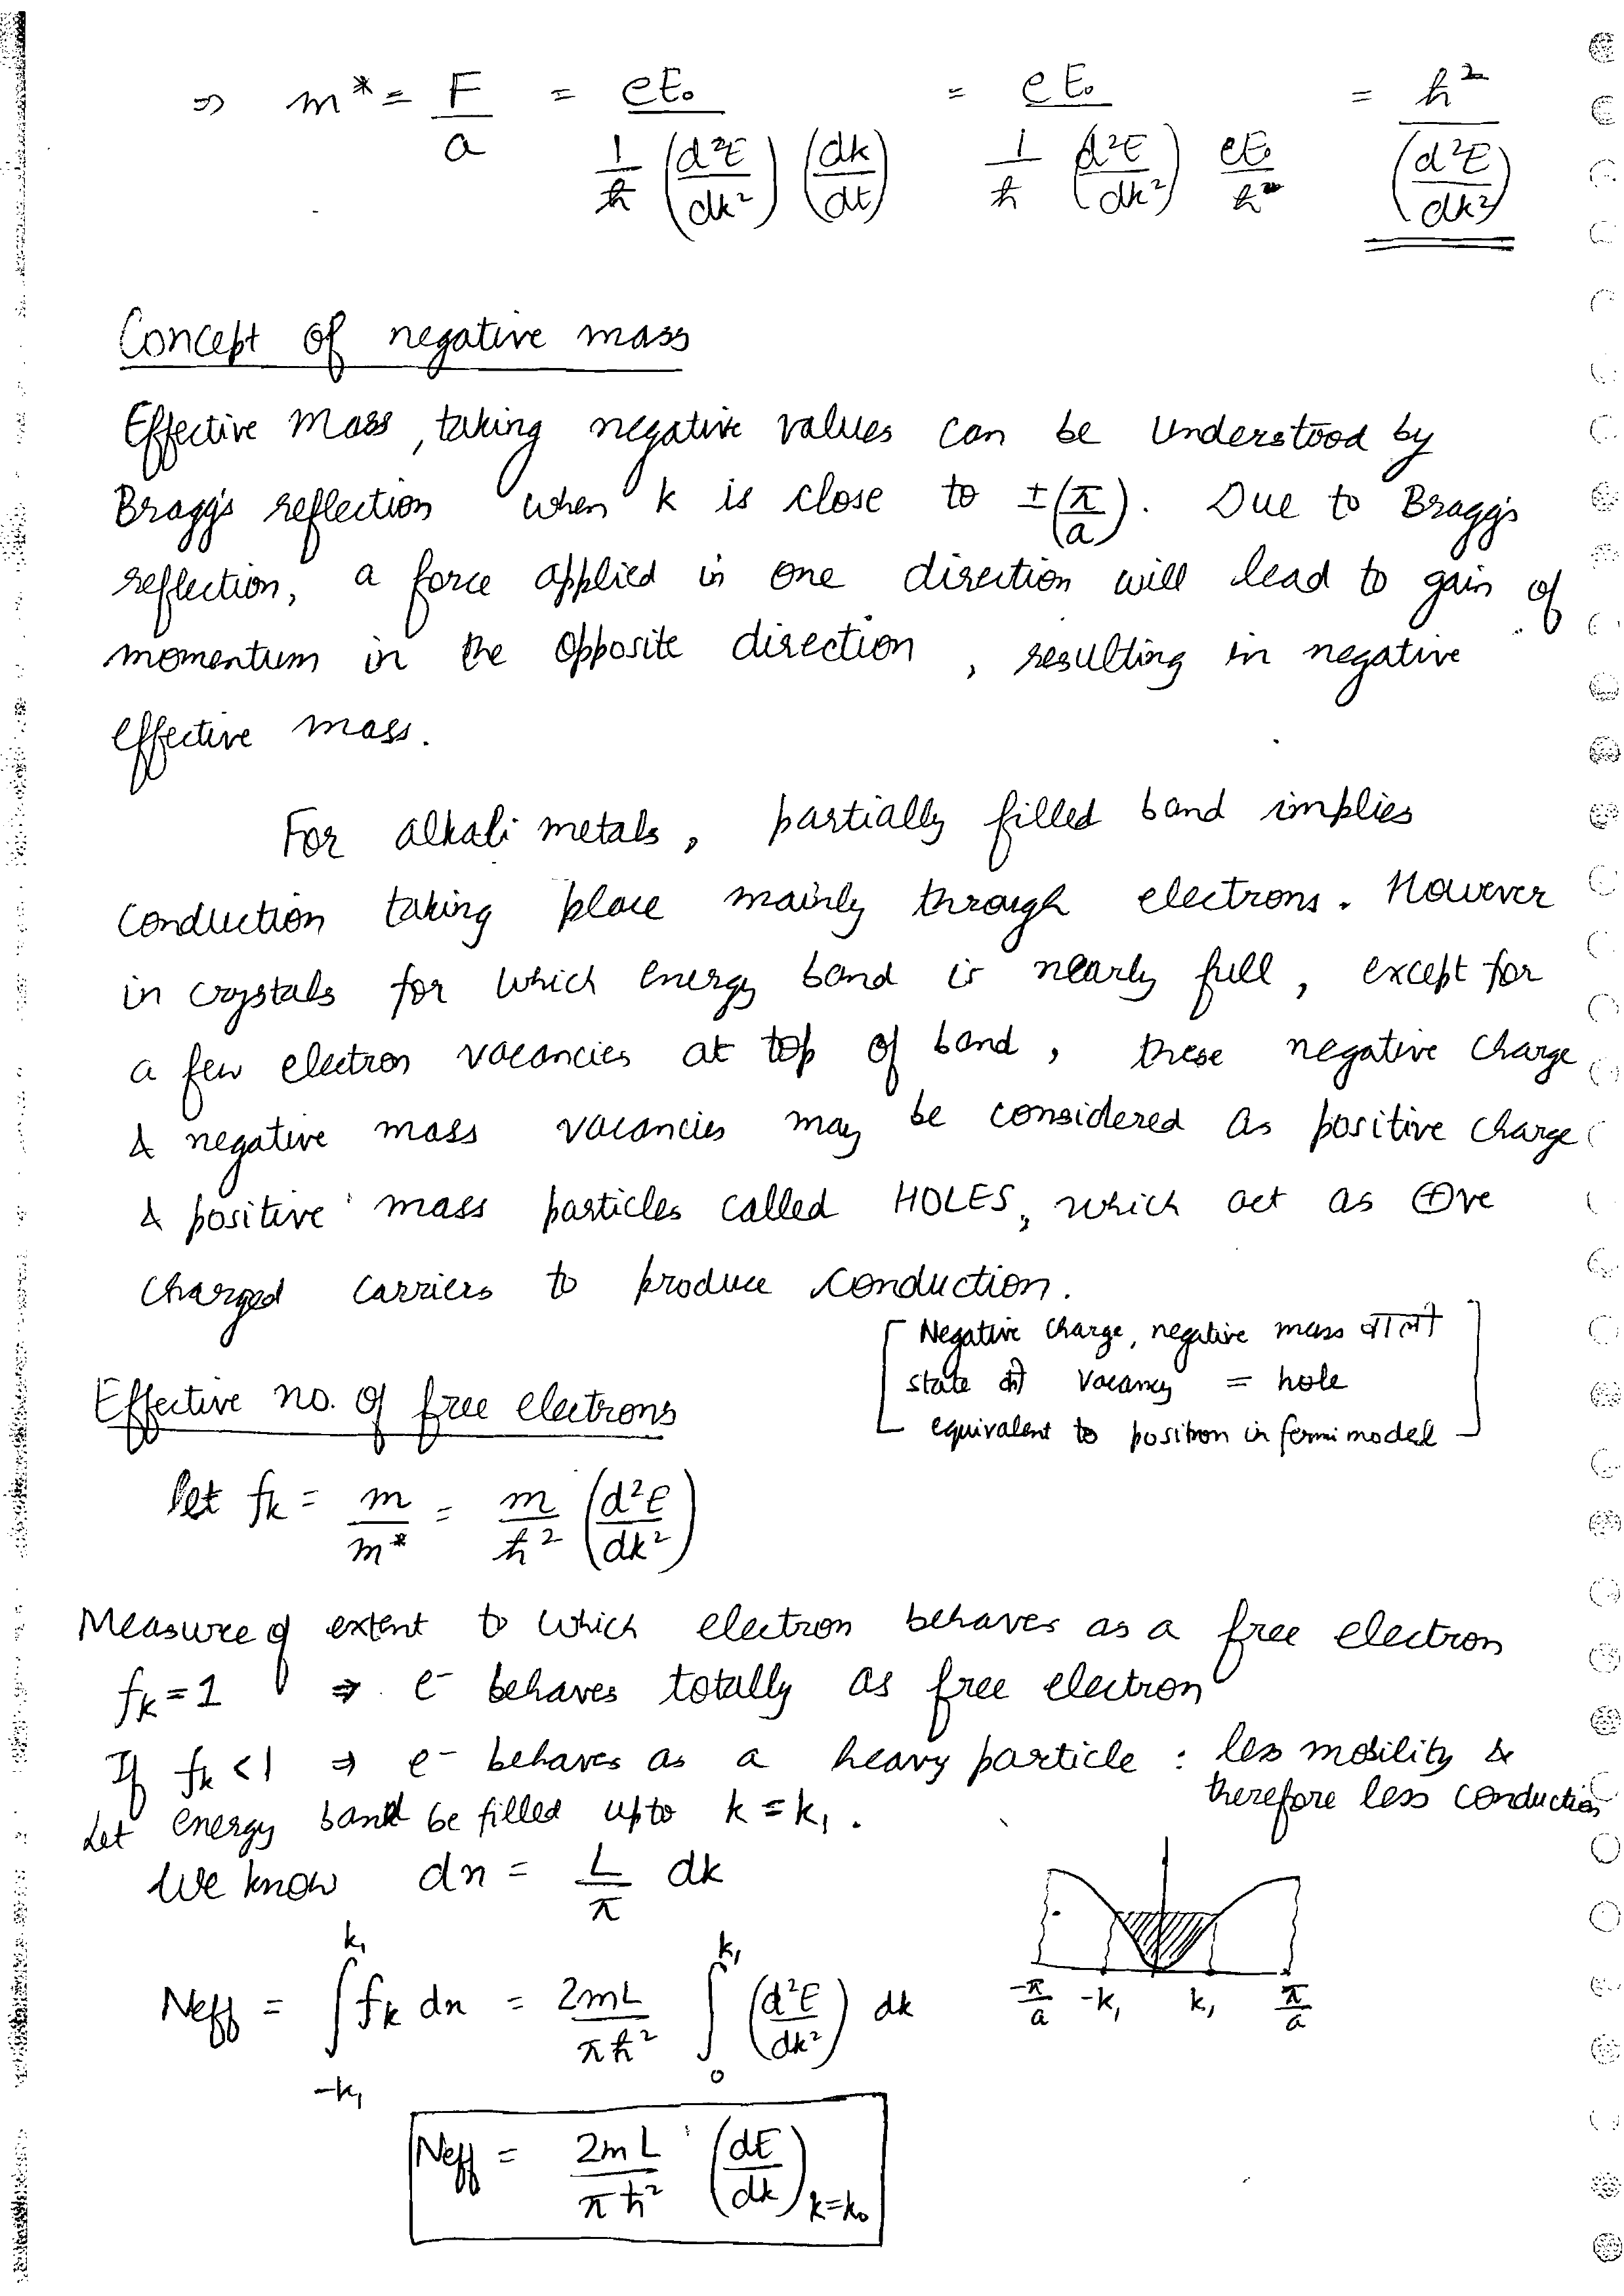 ⇒ m* = F/a = eE₀ / (1/ħ (d²E/dk²) (dk/dt)) = eE₀ / (1/ħ (d²E/dk²) eE₀/ħ) = ħ² / (d²E/dk²)
Concept of negative mass
Effective mass, taking negative values can be understood by
Bragg's reflection when k is close to ±(π/a). Due to Bragg's
reflection, a force applied in one direction will lead to gain of
momentum in the opposite direction, resulting in negative
effective mass.
For alkali metals, partially filled band implies
conduction taking place mainly through electrons. However
in crystals for which energy band is nearly full, except for
a few electron vacancies at top of band, these negative charge
& negative mass vacancies may be considered as positive charge
& positive mass particles called HOLES, which act as ⊕ve
charged carriers to produce conduction.
[ Negative charge, negative mass वाली
state की vacancy = hole
equivalent to positron in fermi model ]
Effective no. of free electrons
let fk = m/m* = m/ħ² (d²E/dk²)
Measure of extent to which electron behaves as a free electron
fk = 1 ⇒ e⁻ behaves totally as free electron
If fk < 1 ⇒ e⁻ behaves as a heavy particle : less mobility &
therefore less conduction
Let energy band be filled upto k = k₁.
We know dn = L/π dk
Neff = ∫₋ₖ₁^k₁ fk dn = 2mL/πħ² ∫₀^k₁ (d²E/dk²) dk
-π/a -k₁ k₁ π/a
Neff = 2mL/πħ² (dE/dk)k=k₀